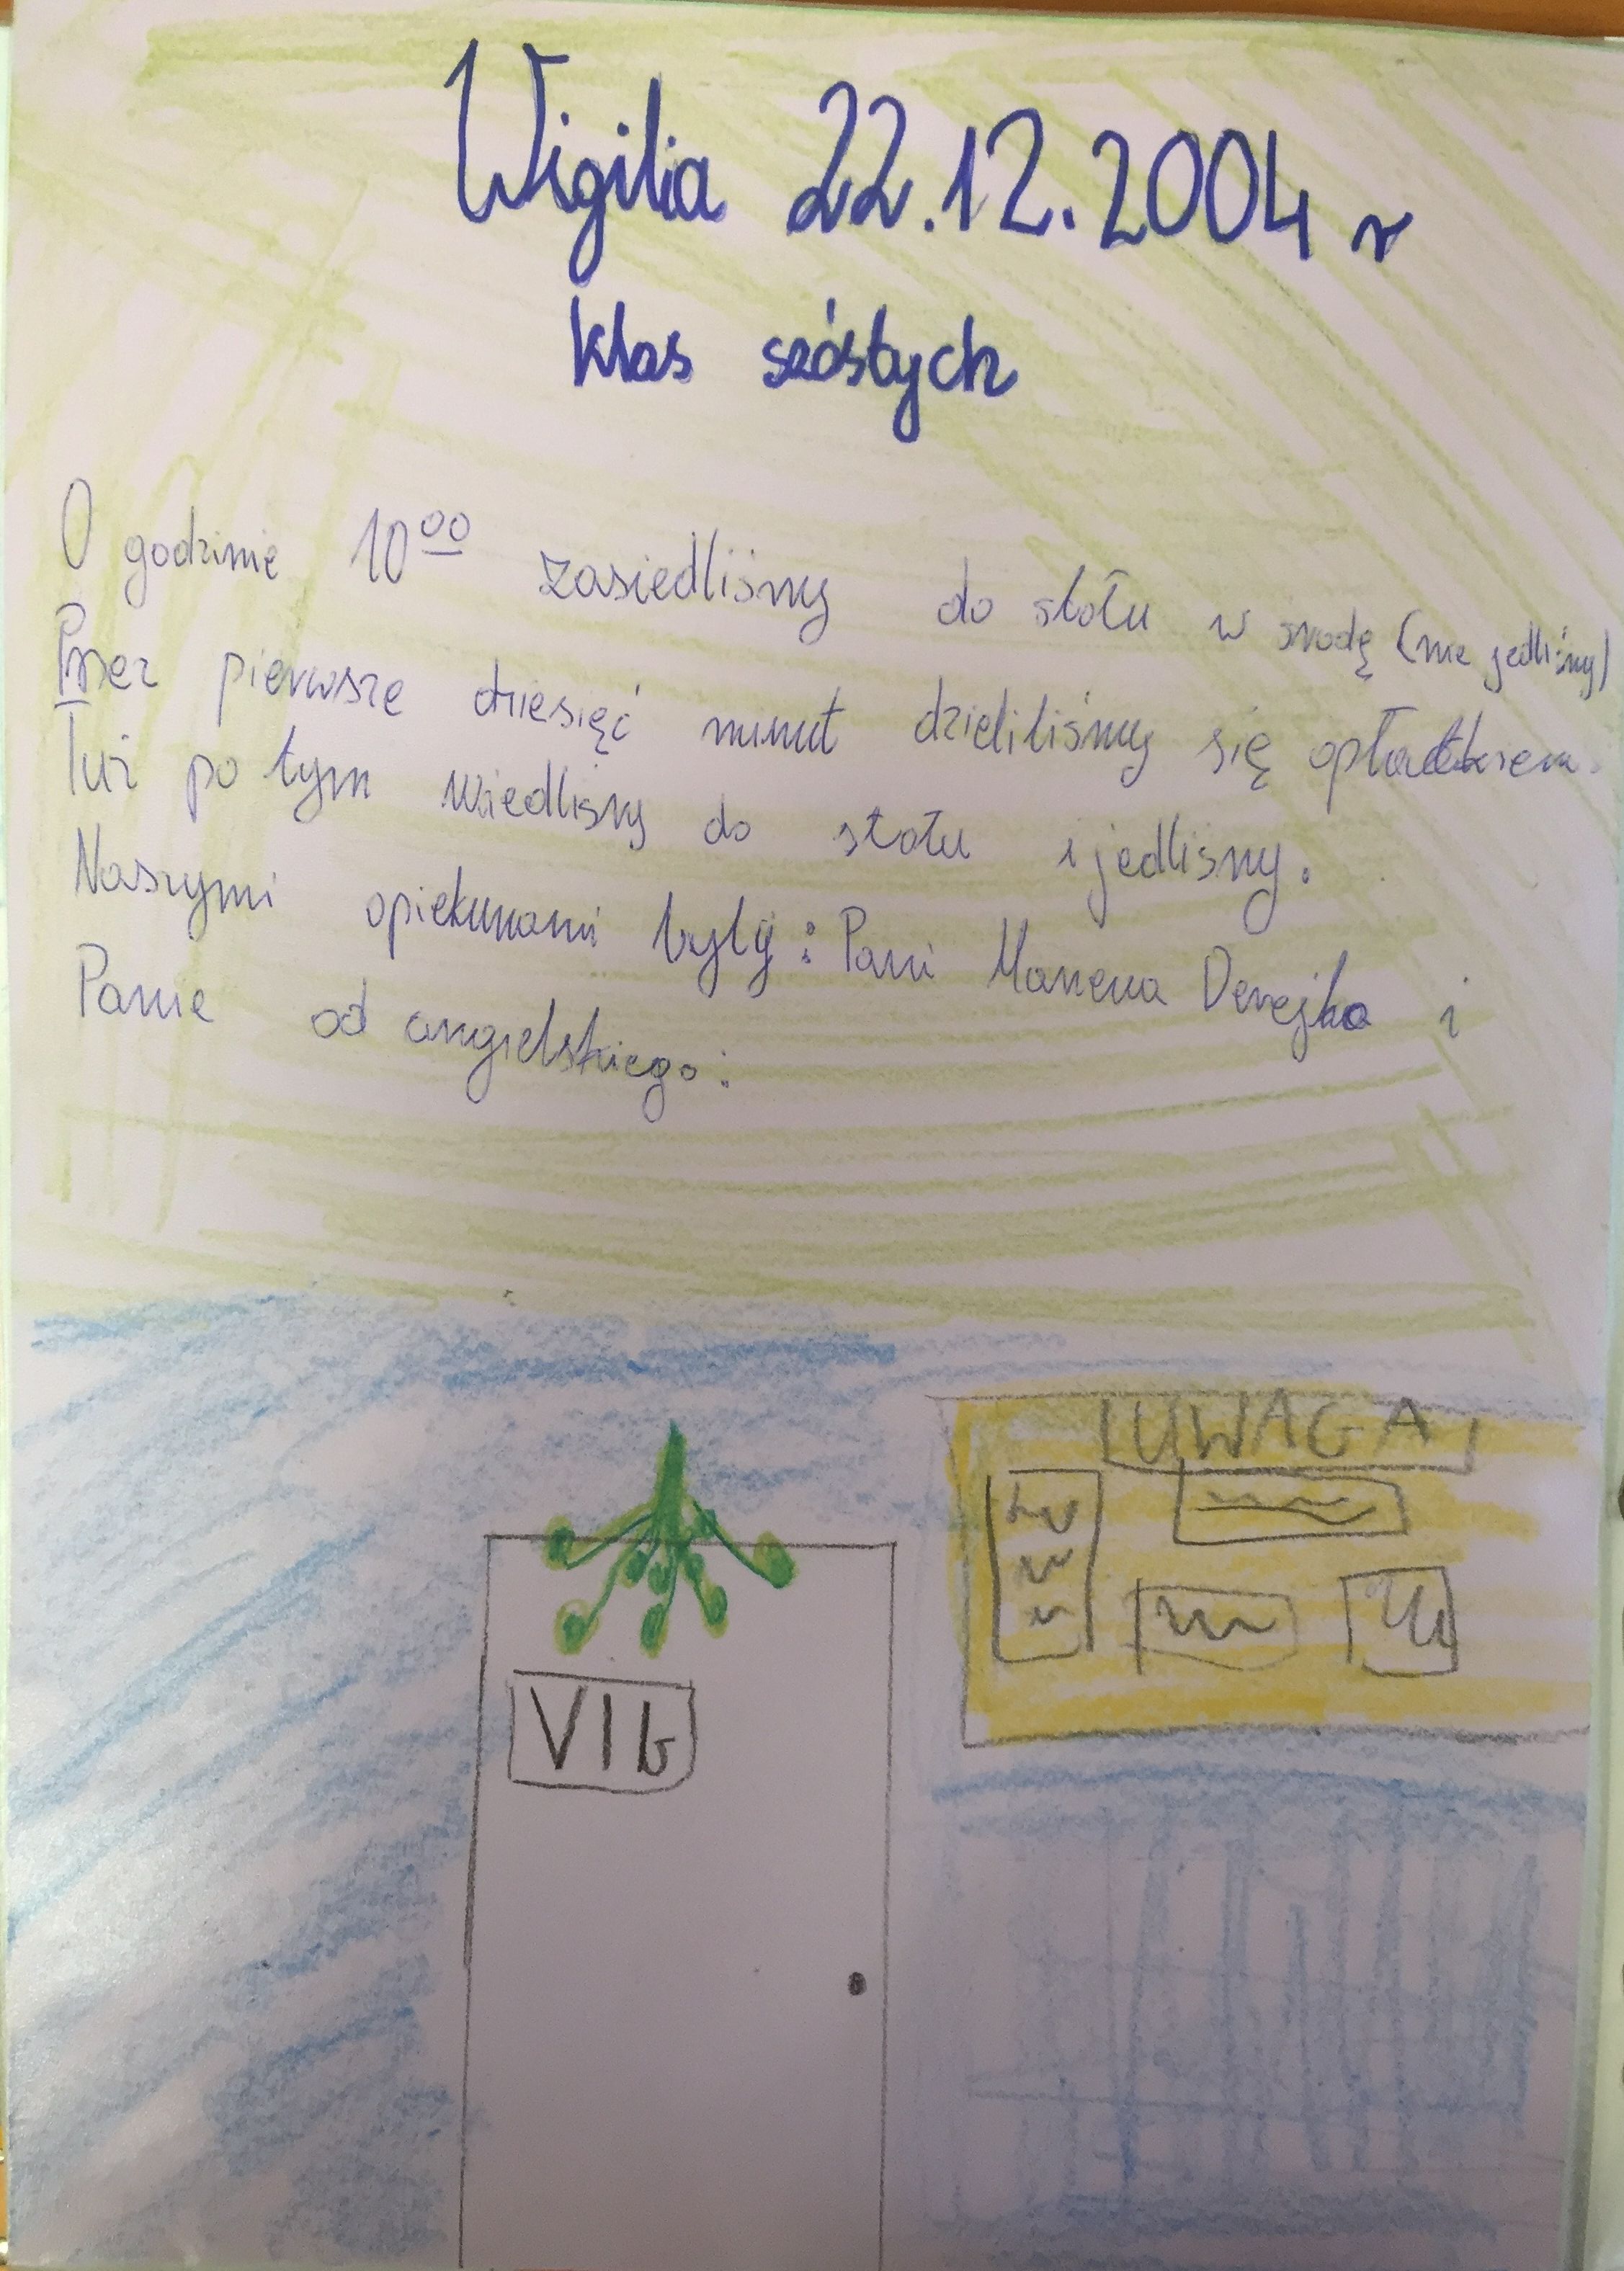 Wigilia 22.12.2004 r
klas szóstych
O godzinie 10⁰⁰ zasiedliśmy do stołu w środę (nie jedliśmy)
Przez pierwsze dziesięć minut dzieliliśmy się opłatkiem.
Tuż po tym do stołu i jedliśmy.
Naszymi opiekunami były: Pani Marzena Derejko i
Panie od angielskiego:
UWAGA
VI b